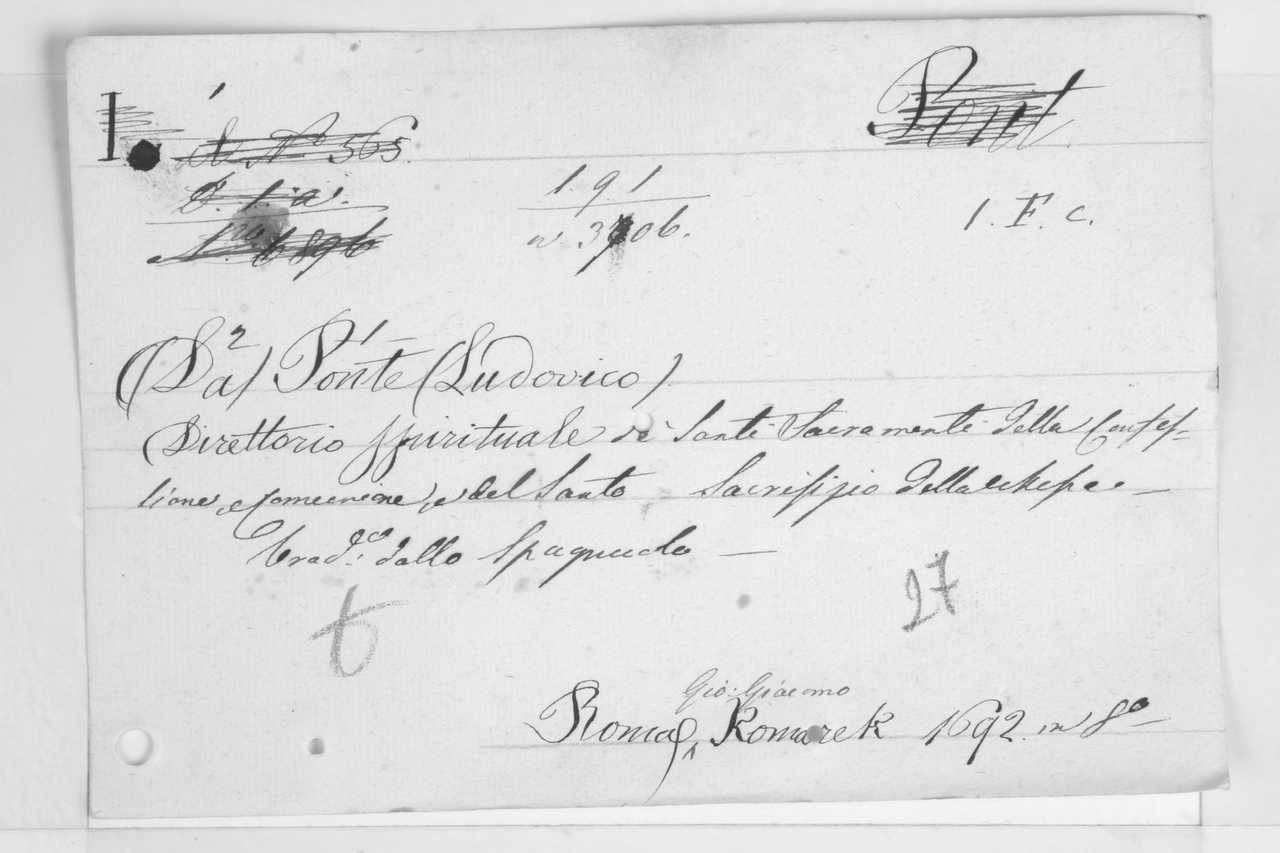 Pont
N° 565
1. 9. 1
1. F. c.
n 3706.
N.ro 6896
(Da) Ponte (Ludovico)
Direttorio spirituale de Santi Sacramenti della Confes-
sione, e comunione, e del Santo Sacrifizio della Messa. —
Trad.co dallo Spagnuolo —
6
27
Gio: Giacomo
Roma, Komarek 1692. in 8°